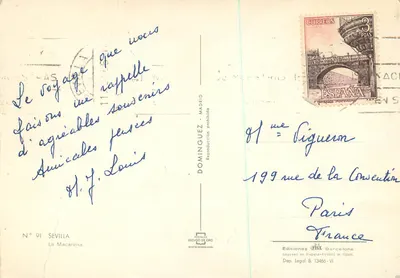 Le voyage que nous
faisons me rappelle
d'agréables souvenirs
Amicales pensées
M. J. Louis
Nº 91 SEVILLA
La Macarena
DOMINGUEZ
MADRID
CORREOS
ESPAÑA
Mme Vigueron
199 rue de la Convention
Paris
France
Dep. Legal B.